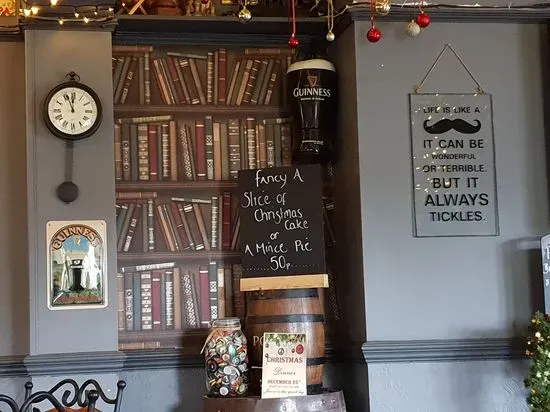 GUINNESS
LIFE IS LIKE A
IT CAN BE
WONDERFUL
OR TERRIBLE.
BUT IT
ALWAYS
TICKLES.
FANCY A
Slice of
Christmas
Cake
or
A Mince Pie
50p
GUINNESS
CHRISTMAS
Dinner
DECEMBER 25